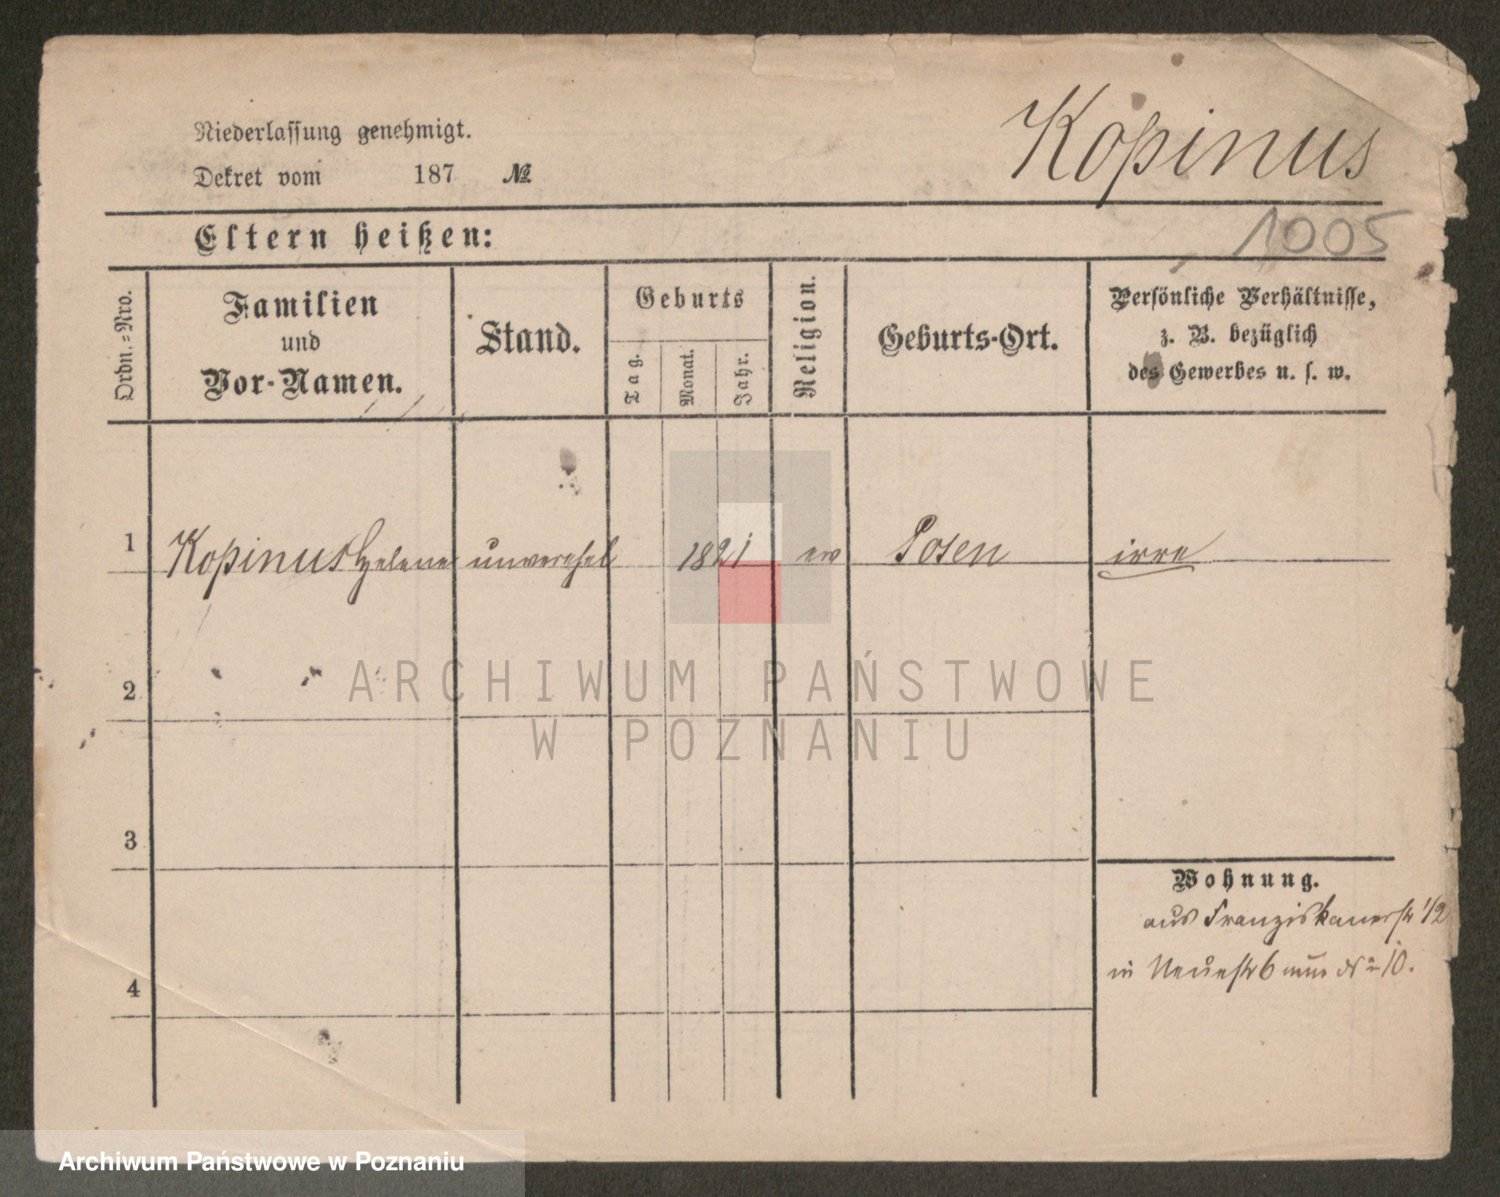 Kopinus
Niederlassung genehmigt.
Dekret vom 187 №
1005
Eltern heißen:
Ordn.-Nro.
Familien
und
Vor-Namen.
Stand.
Geburts
Tag.
Monat.
Jahr.
Religion.
Geburts-Ort.
Persönliche Verhältnisse,
z. B. bezüglich
des Gewerbes u. s. w.
1 Kopinus Helene unverehel 1821 ev Posen irre
2
3
4
Wohnung.
aus Franziskanerstr 1/2
in Neuestr 6 10.
ARCHIWUM PAŃSTWOWE
W POZNANIU
Archiwum Państwowe w Poznaniu